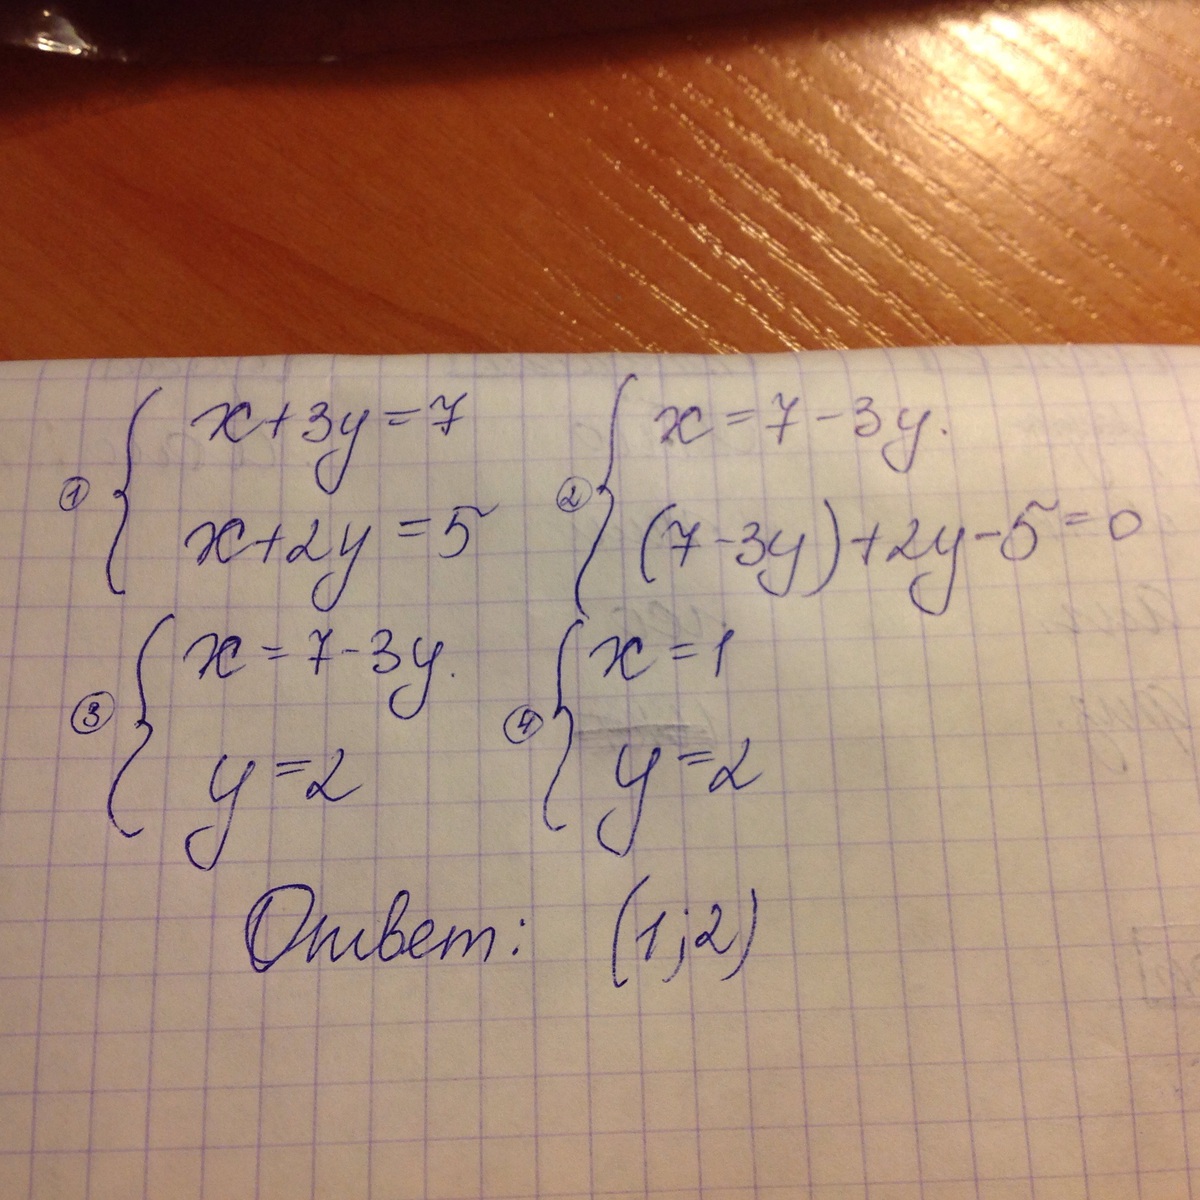 ① x+3y=7
x+2y=5
② x=7-3y.
(7-3y)+2y-5=0
③ x=7-3y.
y=2
④ x=1
y=2
Ответ: (1;2)